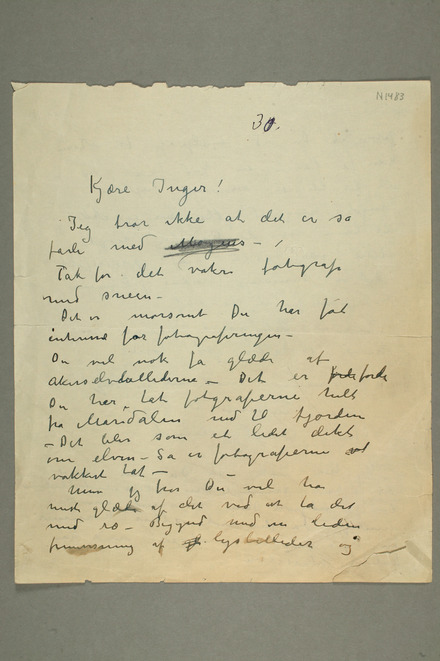 N 1483
30.
Kjære Inger!
Jeg tror ikke at det er så
farli med –
Tak for det vakre fotografi
med sneen –
Det er morsomt Du har fåt
interesse for fotograferingen –
Du vil nok få glæde af
akerselvbillederne – Det er fordi
Du har tat fotografierne helt
fra Maridalen ned til fjorden
– Det blir som et lidet dikt
om elven – Så er fotografierne
vakkert tat –
Men jeg tror Du vil ha
glæde af det ved at ta det
med ro – Begynd med en liden
af lysbilleder og